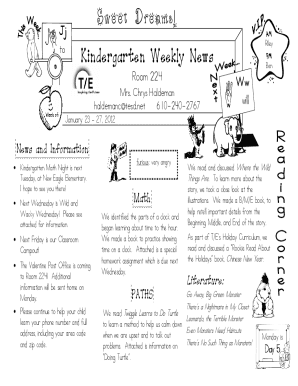 Sweet Dreams!
This Week
Jj
to
Kindergarten Weekly News
V.I.P.
AM
Riley
PM
Ben
T/E
Room 224
Mrs. Chrys Haldeman
haldemanc@tesd.net 610-240-2767
Next Week
Ww
will
Week of:
January 23 - 27, 2012
News and Information
• Kindergarten Math Night is next
Tuesday at New Eagle Elementary.
I hope to see you there!
• Next Wednesday is Wild and
Wacky Wednesday! Please see
attached for information.
• Next Friday is our Classroom
Campout!
• The Valentine Post Office is coming
to Room 224! Additional
information will be sent home on
Monday.
• Please continue to help your child
learn your phone number and full
address, including your area code
and zip code.
furious: very angry
Math:
We identified the parts of a clock and
began learning about time to the hour.
We made a book to practice showing
time on a clock. Attached is a special
homework assignment which is due next
Wednesday.
PATHS:
We read Twiggle Learns to Do Turtle
to learn a method to help us calm down
when we are upset and to talk out
problems. Attached is information on
"Doing Turtle".
Reading Corner
We read and discussed Where the Wild
Things Are. To learn more about the
story, we took a close look at the
illustrations. We made a B/M/E book, to
help retell important details from the
Beginning, Middle, and End of the story.
As part of T/E's Holiday Curriculum, we
read and discussed a "Rookie Read About
the Holidays" book, Chinese New Year.
Literature:
Go Away, Big Green Monster
There's a Nightmare in My Closet
Leonardo, the Terrible Monster
Even Monsters Need Haircuts
There's No Such Thing as Monsters!
Monday is
Day 5.